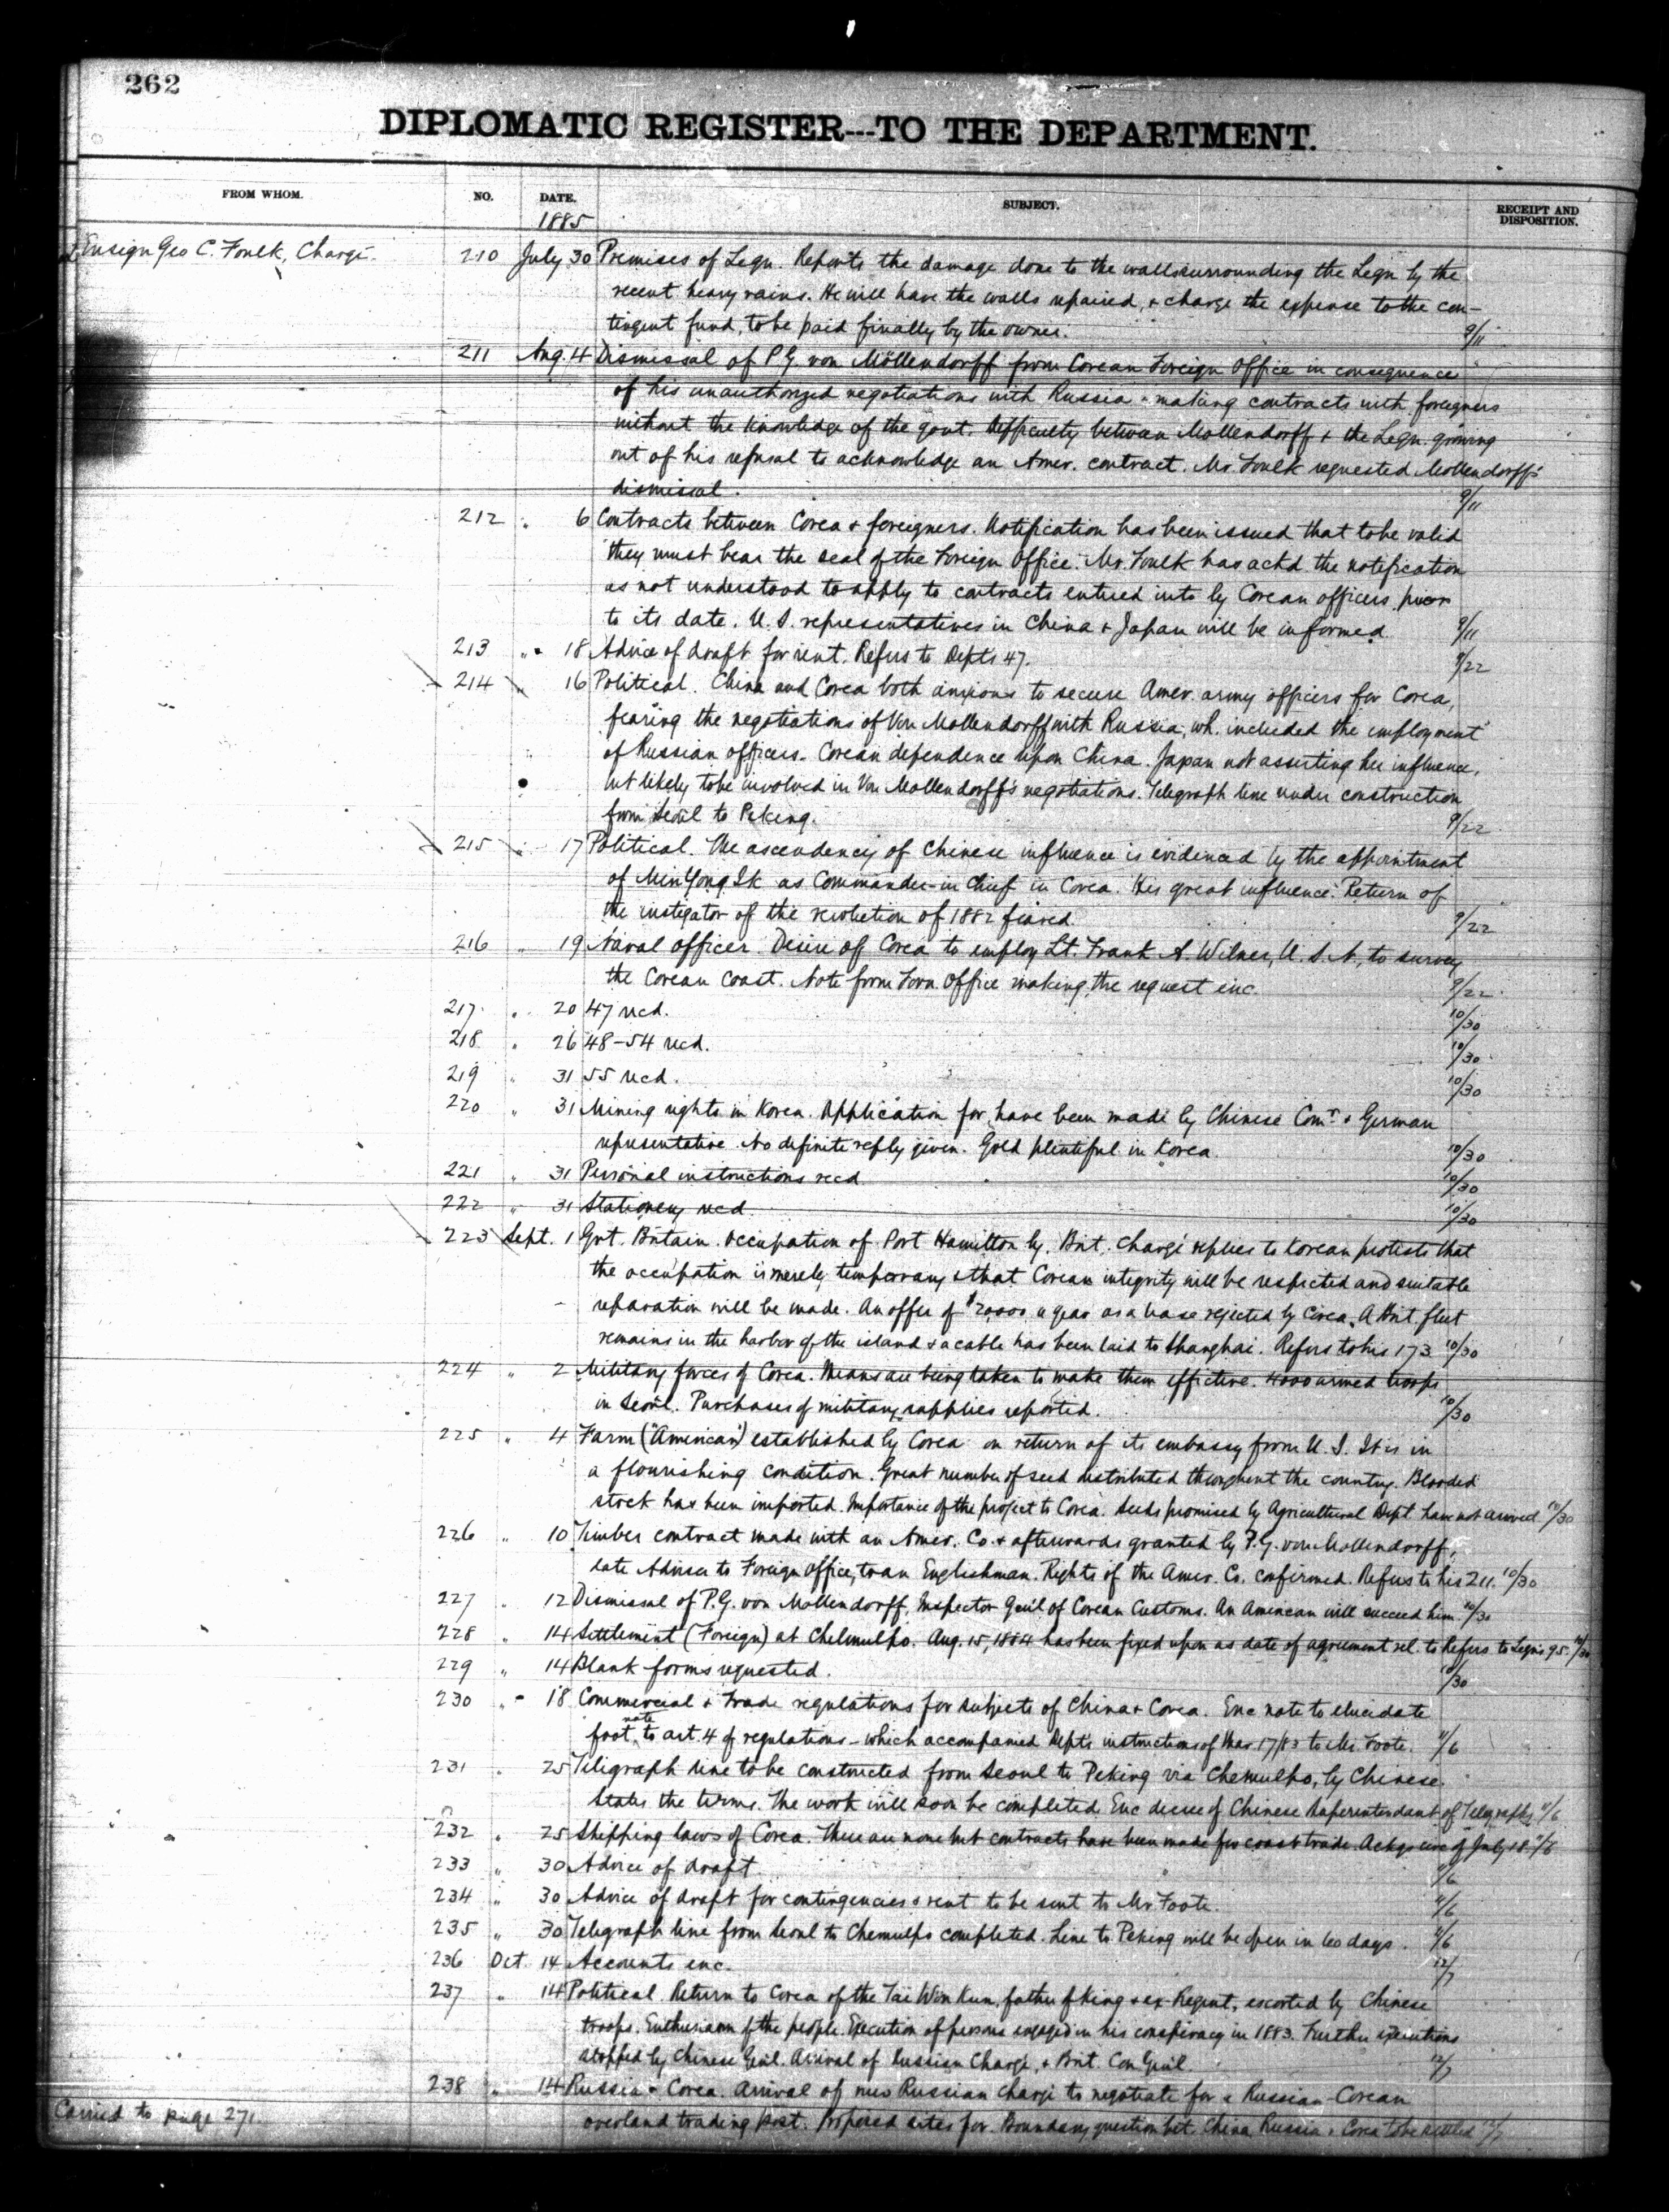 262
DIPLOMATIC REGISTER---TO THE DEPARTMENT.
FROM WHOM. NO. DATE. SUBJECT. RECEIPT AND DISPOSITION.
1885
Ensign Geo C. Foulk, Chargé. 210 July 30 Premises of Legn. Reports the damage done to the walls surrounding the Legn by the
recent heavy rains. He will have the walls repaired, & charge the expense to the con-
tingent fund, to be paid finally by the owner. 9/11
211 Aug. 4 Dismissal of P. G. von Möllendorff from Corean Foreign Office in consequence
of his unauthorized negotiations with Russia & making contracts with foreigners
without the knowledge of the govt. Difficulty between Mollendorff & the Legn. growing
out of his refusal to acknowledge an Amer. contract. Mr. Foulk requested Mollendorff's
dismissal. 9/11
212 " 6 Contracts between Corea & foreigners. Notification has been issued that to be valid
they must bear the seal of the Foreign Office. Mr. Foulk has ackd the notification
as not understood to apply to contracts entered into by Corean officers prior
to its date. U. S. representatives in China & Japan will be informed. 9/11
213 " 18 Advice of draft for rent. Refers to Depts 47. 9/22
214 " 16 Political. China and Corea both anxious to secure Amer. army officers for Corea,
fearing the negotiations of Von Mollendorff with Russia, wh. included the employment
of Russian officers. Corean dependence upon China. Japan not asserting her influence,
but likely to be involved in Von Mollendorff's negotiations. Telegraph line under construction
from Seoul to Peking. 9/22
215 " 17 Political. The ascendency of Chinese influence is evidenced by the appointment
of Min Yong Ik as Commander-in Chief in Corea. His great influence. Return of
the instigator of the revolution of 1882 feared. 9/22
216 " 19 Naval officer. Desire of Corea to employ Lt. Frank A. Wilner, U. S. N., to survey
the Corean coast. Note from Forn Office making the request enc. 9/22
217 " 20 47 recd. 10/30
218 " 26 48-54 recd. 10/30
219 " 31 55 recd. 10/30
220 " 31 Mining rights in Korea. Application for, have been made by Chinese Comr. & German
representative. No definite reply given. Gold plentiful in Korea. 10/30
221 " 31 Personal instructions recd. 10/30
222 " 31 Stationery recd. 10/30
223 Sept. 1 Grt. Britain. Occupation of Port Hamilton by. Brit. Chargé replies to Corean protests that
the occupation is merely temporary & that Corean integrity will be respected and suitable
reparation will be made. An offer of $20,000 a year as a lease rejected by Corea. A Brit. fleet
remains in the harbor of the island & a cable has been laid to Shanghai. Refers to his 173 10/30
224 " 2 Military forces of Corea. Means are being taken to make them effective. 4000 armed troops
in Seoul. Purchases of military supplies reported. 10/30
225 " 4 Farm ("American") established by Corea on return of its embassy from U. S. It is in
a flourishing condition. Great number of seed distributed throughout the country. Blooded
stock has been imported. Importance of the project to Corea. Seeds promised by Agricultural Dept. have not arrived 10/30
226 " 10 Timber contract made with an Amer. Co. & afterwards granted by P. G. von Mollendorff,
late Adviser to Foreign Office, to an Englishman. Rights of the Amer. Co. confirmed. Refers to his 211. 10/30
227 " 12 Dismissal of P. G. von Mollendorff, Inspector Genl of Corean Customs. An American will succeed him. 10/30
228 " 14 Settlement (Foreign) at Chelmulpo. Aug. 15, 1884 has been fixed upon as date of agreement rel. to Refers to Legn's 95. 10/30
229 " 14 Blank forms requested. 10/30
230 " 18 Commercial & trade regulations for subjects of China & Corea. Enc note to elucidate
foot note to art. 4 of regulations - which accompanied Depts instructions of Mar. 17/83 to Mr. Foote. 11/6
231 " 25 Telegraph line to be constructed from Seoul to Peking via Chemulpo, by Chinese.
States the terms. The work will soon be completed. Enc decree of Chinese Superintendant of Telegraphs 11/6
232 " 25 Shipping laws of Corea. There are none but contracts have been made for coast trade. Ackgs circ of July 18. 11/6
233 " 30 Advice of draft. 11/6
234 " 30 Advice of draft for contingencies & rent to be sent to Mr. Foote. 11/6
235 " 30 Telegraph line from Seoul to Chemulpo completed. Line to Peking will be open in 60 days. 11/6
236 Oct. 14 Accounts enc. 12/7
237 " 14 Political. Return to Corea of the Tai Won Kun, father of King & ex-Regent, escorted by Chinese
troops. Enthusiasm of the people. Execution of persons engaged in his conspiracy in 1883. Further executions
stopped by Chinese Genl. Arrival of Russian Chargé, & Brit. Con Genl. 12/7
238 " 14 Russia & Corea. Arrival of new Russian Chargé to negotiate for a Russian-Corean
Carried to page 271. overland trading post. Proposed sites for. Boundary question bet. China, Russia & Corea to be settled 12/7